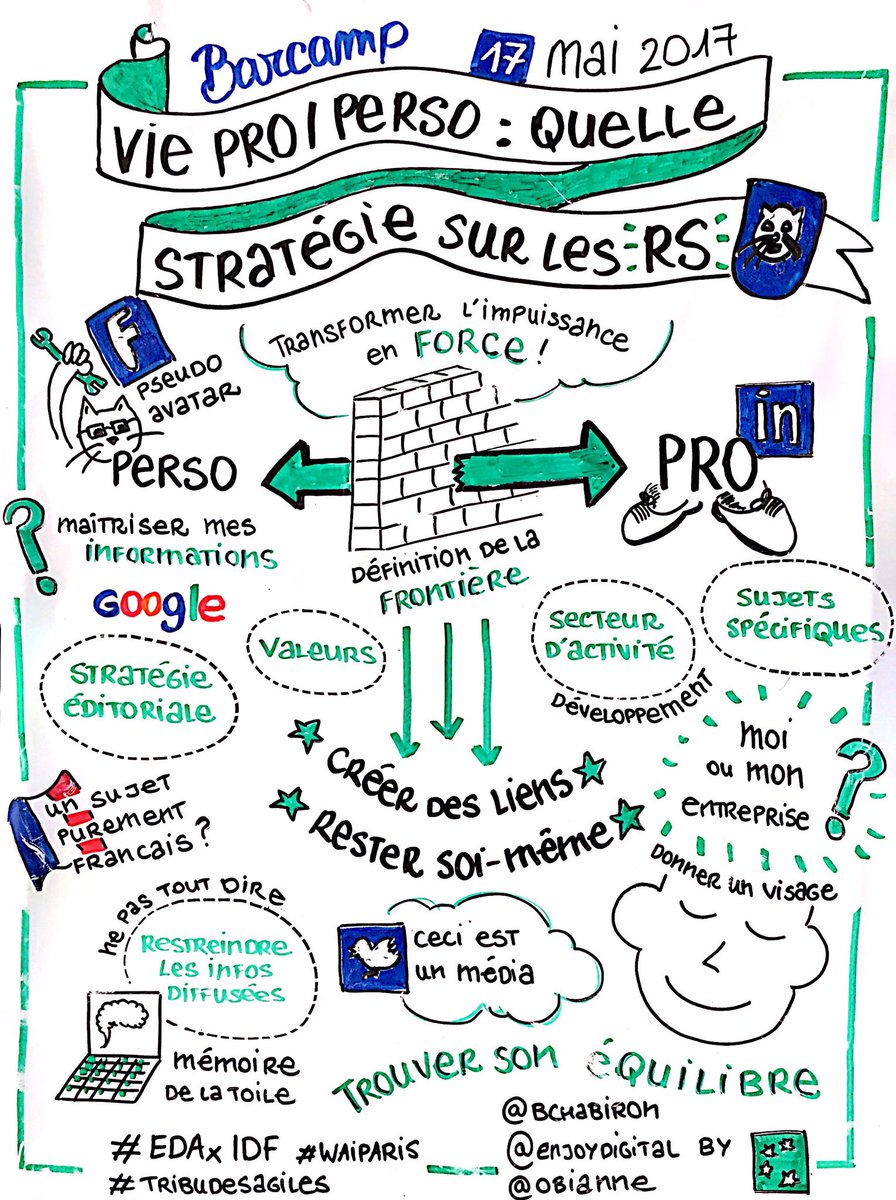 Barcamp 17 mai 2017
VIE PRO/PERSO : QUELLE
STRATÉGIE SUR LES RS
TRANSFORMER L'IMPUISSANCE
en FORCE !
F
PSEUDO
AVATAR
PERSO
in
PRO
?
maîTRISER mes
INFORMATIONS
GOOGLE
DÉFINITION DE LA
FRONTIÈRE
STRATÉGIE
ÉDITORIALE
VALEURS
SECTEUR
D'ACTIVITÉ
DÉVELOPPEMENT
SUJETS
SPÉCIFIQUES!
CRÉER DES LIENS
RESTER SOI-MÊME
MOI
OU MON
ENTREPRISE
?
DONNER UN VISAGE
UN SUJET
PUREMENT
FRANCAIS ?
NE PAS TOUT DIRE
RESTREINDRE
LES INFOS
DIFFUSÉES
CECI EST
UN MÉDIA
MÉMOIRE
DE LA TOILE
TROUVER SON ÉQUILIBRE
#EDAxIDF #WAIPARIS
#TRIBUDESAGILES
@BCHABIRON
@ENJOYDIGITAL BY
@OBIANNE